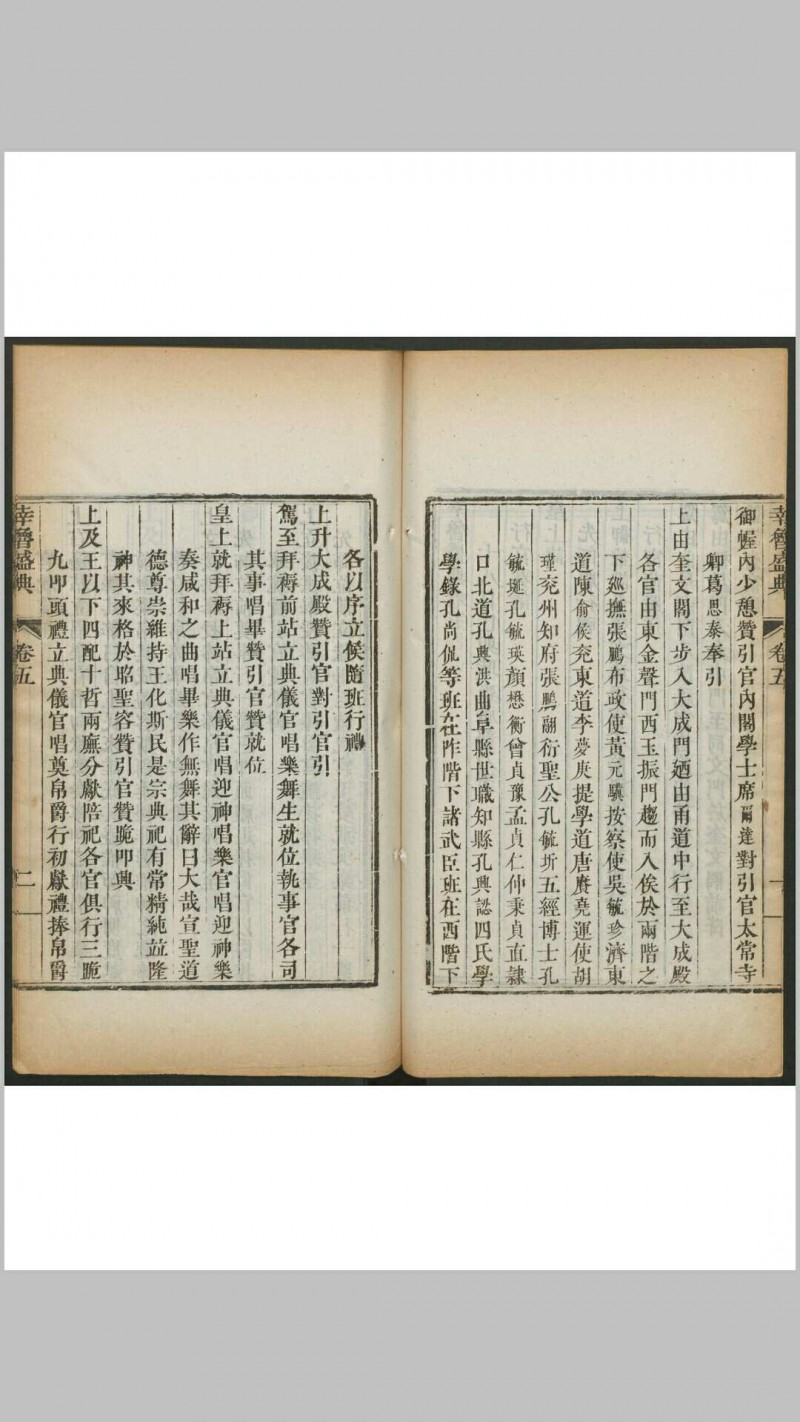 幸魯盛典 卷五 一
御幄內少憩贊引官內閣學士席爾達對引官太常寺
卿葛思泰奉引
上由奎文閣下步入大成門廼由甬道中行至大成殿
各官由東金聲門西玉振門趨而入俟於兩階之
下廵撫張鵬布政使黃元驥按察使吳毓珍濟東
道陳俞侯兖東道李薆庚提學道唐賡堯運使胡
瑾兖州知府張鵬翮衍聖公孔毓圻五經博士孔
毓埏孔毓瑛顏懋衡曾貞豫孟貞仁仲秉貞直隷
口北道孔興洪曲阜縣世職知縣孔興認四氏學
學錄孔尚侃等班在阼階下諸武臣班在西階下
各以序立候隨班行禮
上升大成殿贊引官對引官引
駕至拜褥前站立典儀官唱樂舞生就位執事官各司
其事唱畢贊引官贊就位
皇上就拜褥上站立典儀官唱迎神唱樂官唱迎神樂
奏咸和之曲唱畢樂作無舞其辭曰大哉宣聖道
德尊崇維持王化斯民是宗典祀有常精純並隆
神其來格於昭聖容贊引官贊跪叩興
上及王以下四配十哲兩廡分獻陪祀各官俱行三跪
九叩頭禮立典儀官唱奠帛爵行初獻禮捧帛爵
幸魯盛典 卷五 二